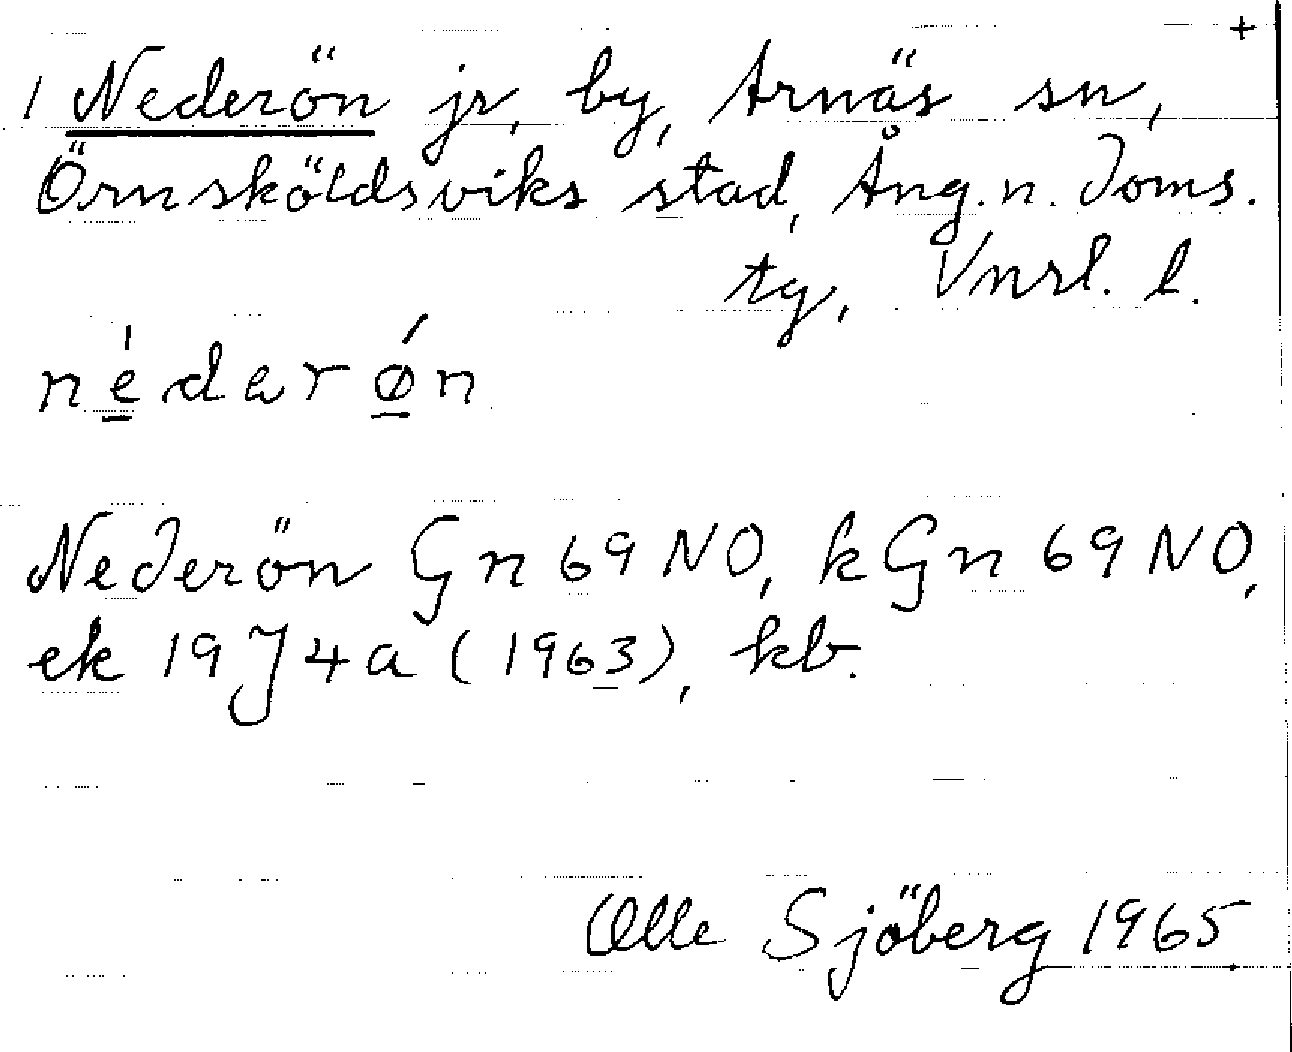 +
1 Nederön jr, by, Arnäs sn,
Örnsköldsviks stad, Ång. n. Doms.
tg, Vnrl. l.
nédarǿn
Nederön Gn 69 NO, kGn 69 NO,
ek 19 J 4 a (1963), kb.
Olle Sjöberg 1965